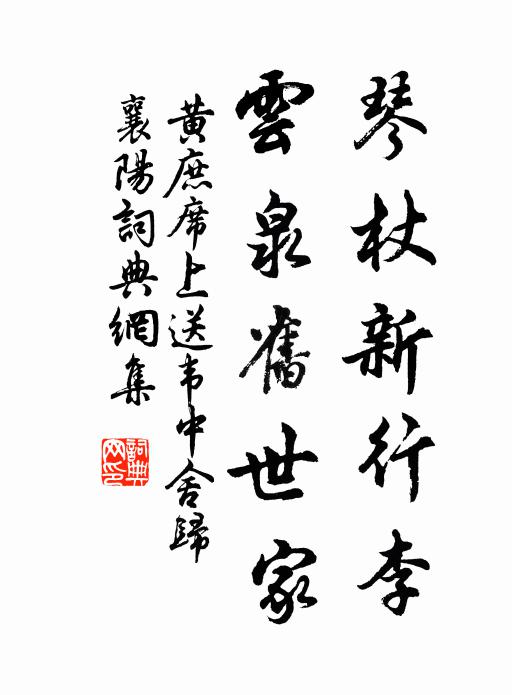 琴杖新行李
雲泉舊世家
黃庶席上送韦中舍歸
襄陽詞典網集
詞典网印